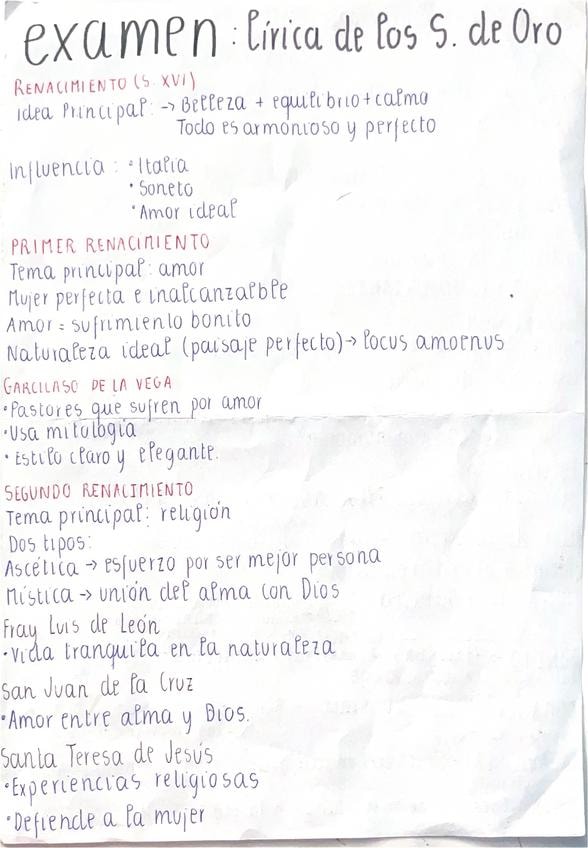 examen: lírica de los S. de Oro
RENACIMIENTO (S. XVI)
idea Principal: → Belleza + equilibrio + calma
Todo es armonioso y perfecto
Influencia: • Italia
• Soneto
• Amor ideal
PRIMER RENACIMIENTO
Tema principal: amor
Mujer perfecta e inalcanzalble
Amor = sufrimiento bonito
Naturaleza ideal (paisaje perfecto) → locus amoenus
GARCILASO DE LA VEGA
• Pastores que sufren por amor
• Usa mitología
• Estilo claro y elegante.
SEGUNDO RENACIMIENTO
Tema principal: religión
Dos tipos:
Ascética → esfuerzo por ser mejor persona
Mística → unión del alma con Dios
Fray Luis de León
• Vida tranquila en la naturaleza
San Juan de la Cruz
• Amor entre alma y Dios.
Santa Teresa de Jesús
• Experiencias religiosas
• Defiende a la mujer